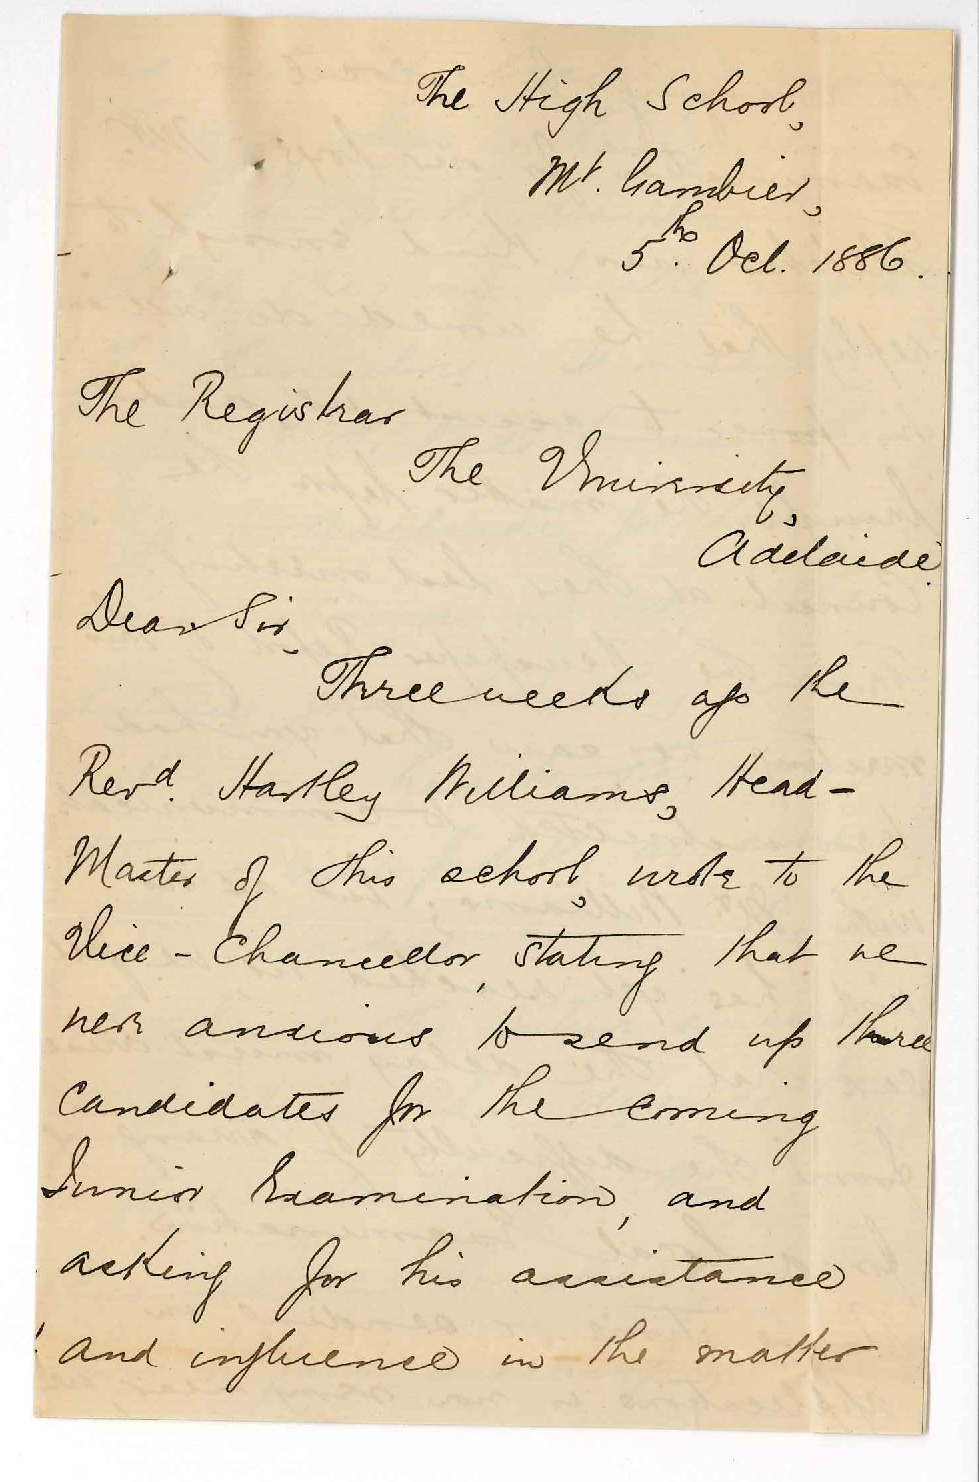 The High School,
Mt. Gambier,
5th. Oct. 1886.
The Registrar
The University,
Adelaide.
Dear Sir,
Three weeks ago the
Revd. Hartley Williams, Head-
Master of this school, wrote to the
Vice-Chancellor, stating that we
were anxious to send up three
candidates for the coming
Junior Examination, and
asking for his assistance
and influence in the matter